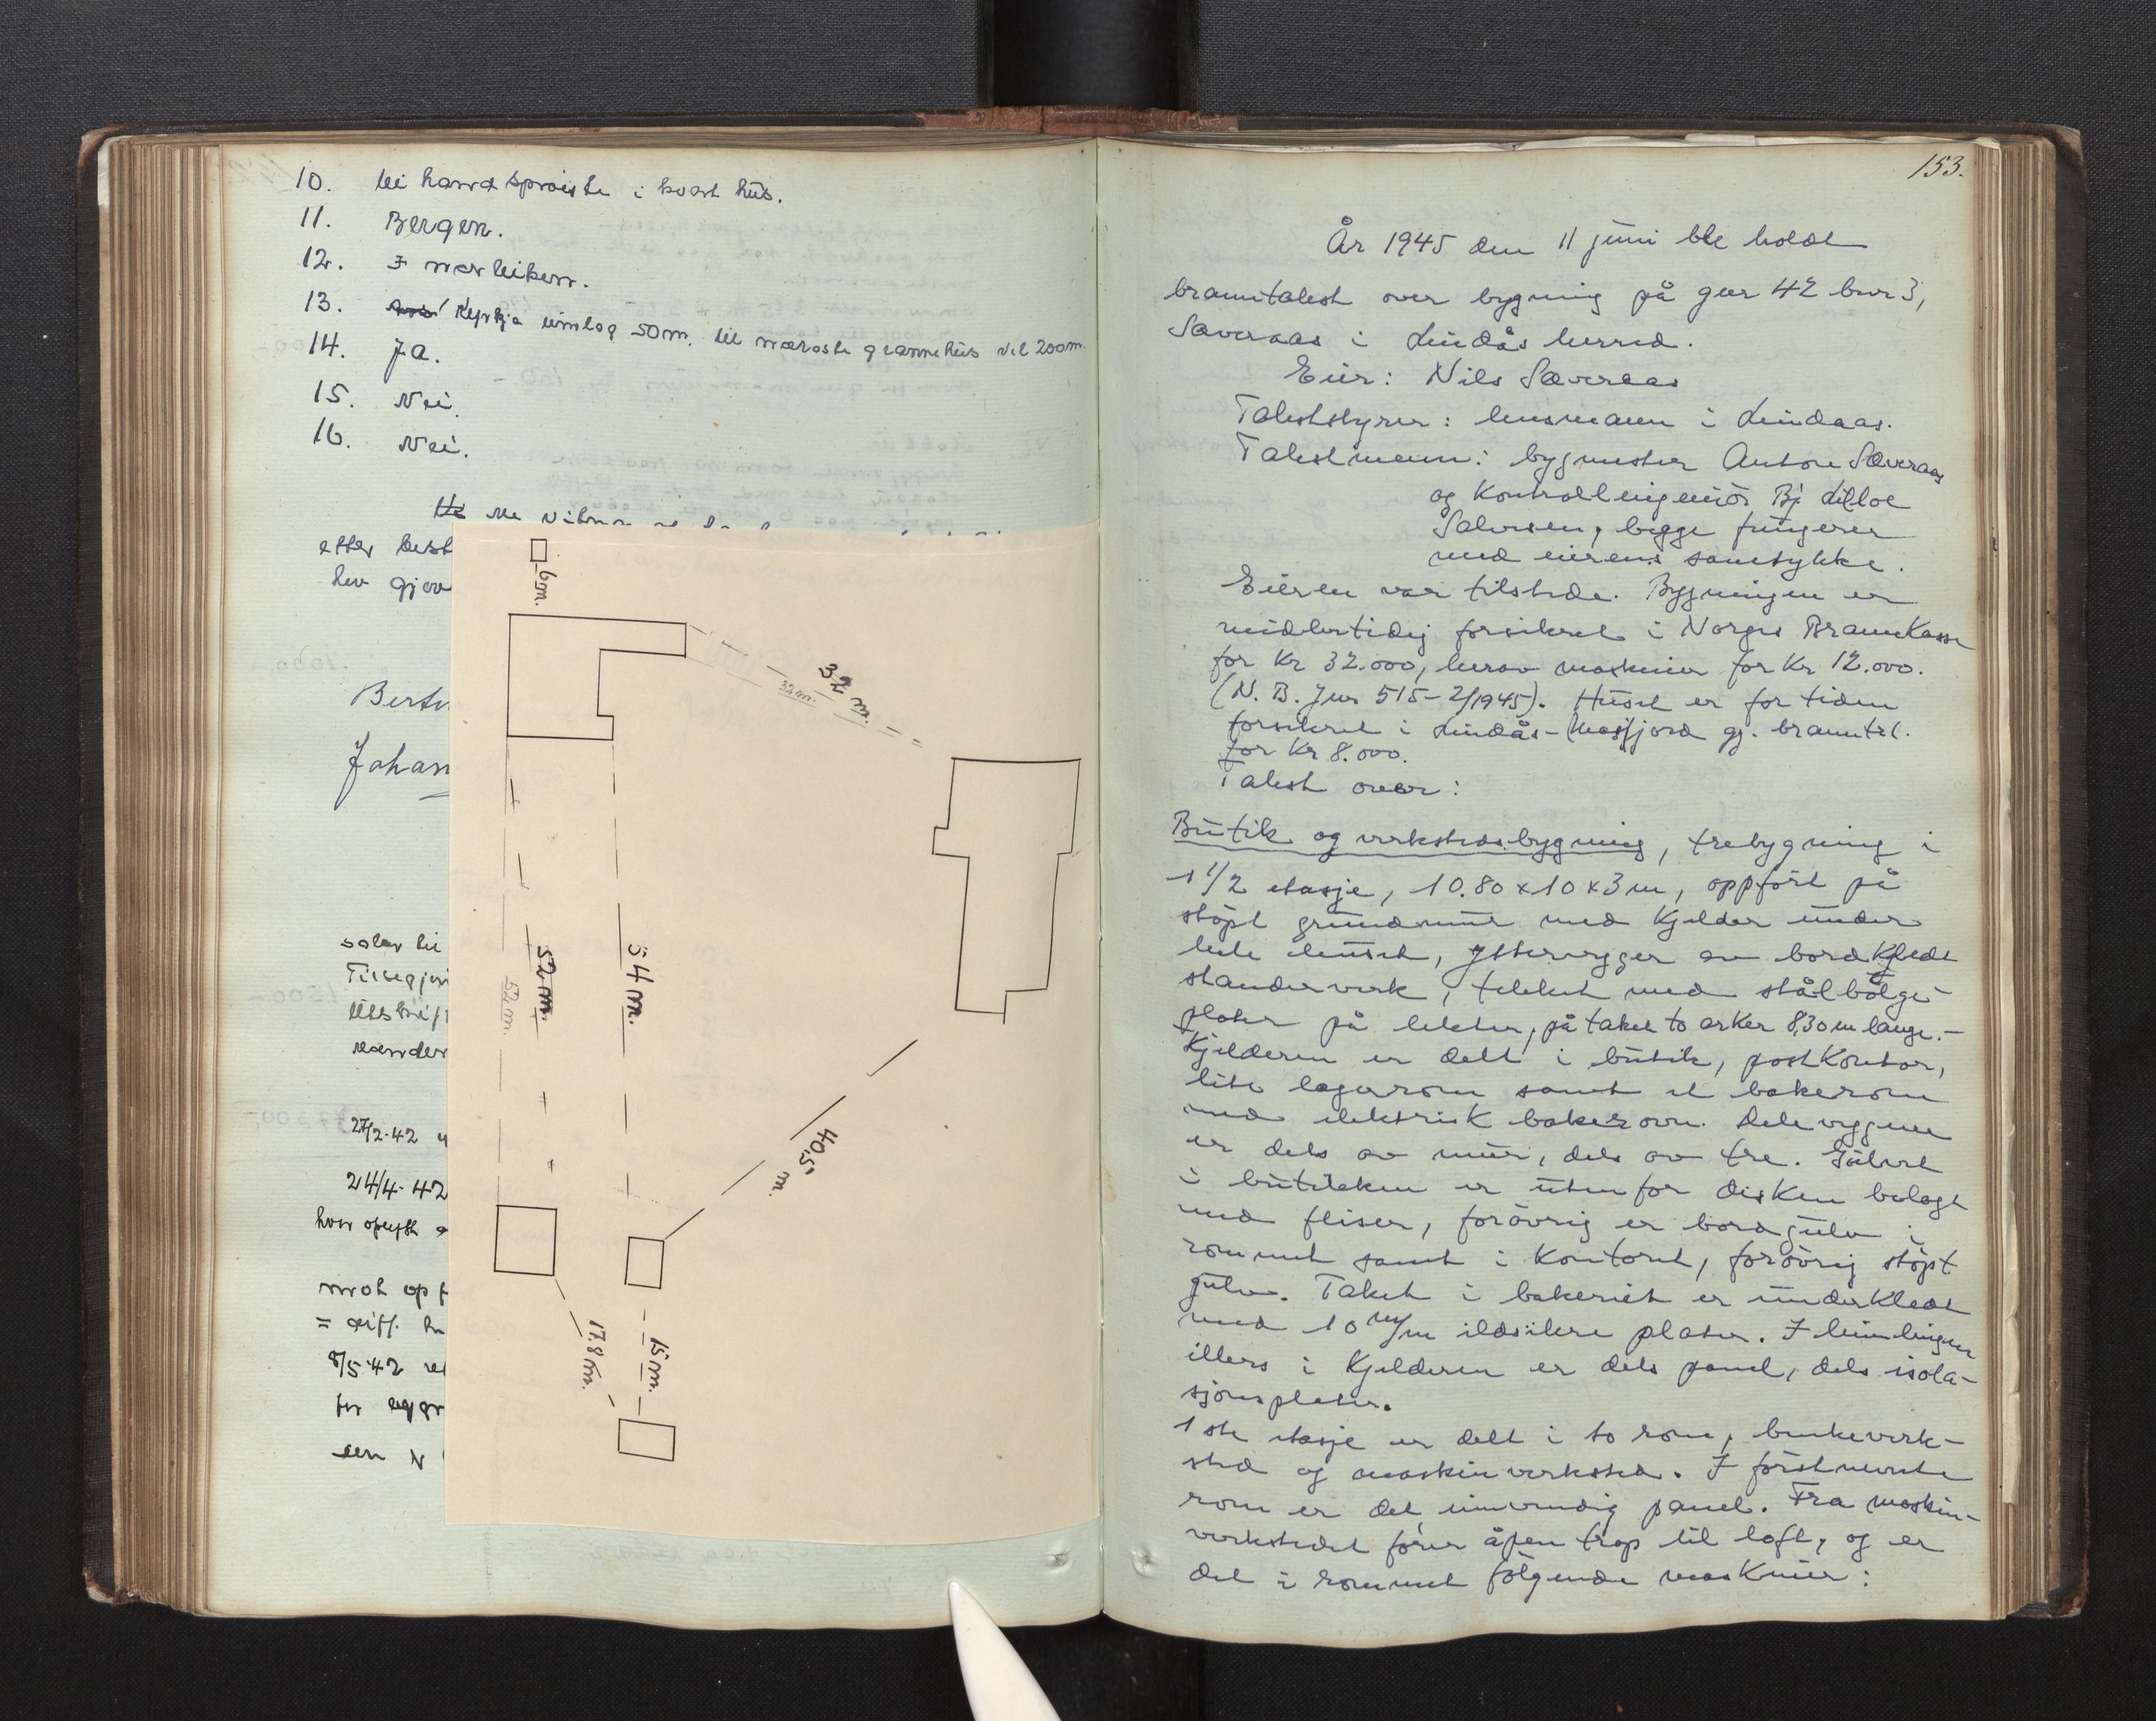 10. Ei handsprøite i kvart hus.
11. Bergen.
12. I nærleiken.
13. Kyrkja umlag 50m. til næraste grannehus vel 200m.
14. Ja.
15. Nei.
16. Nei.
efter best
hev gjev
Bert
Johan
27/2-42
24/4-42
mot opp
= diff.
8/5-42
for
den
6m.
32 m.
32 m.
54 m.
52 m.
52 m.
40,5 m.
17.8 m.
15 m.
153.
År 1945 den 11 juni ble holdt
branntakst over bygning på gnr 42 bnr 3,
Sæveraas i Lindås herred.
Eier: Nils Sæveraas
Takststyrer: lensmannen i Lindaas.
Takstmenn: bygmester Anton Sæveraas
og Kontrollingeniør Bj. Lilloe
Salvesen, begge fungerer
med eierens samtykke.
Eieren var tilstede. Bygningen er
midlertidig forsikret i Norges Brannkasse
for Kr 32.000, herav maskiner for Kr 12.000.
(N. B. Jnr 515-2/1945). Huset er for tiden
forsikret i Lindås-Masfjord gj. branntr.
for Kr 8.000.
Takst over:
Butik og verkstedsbygning, trebygning i
1 1/2 etasje, 10.80 x 10 x 3 m, oppført på
støpt grunnmur med Kjelder under
hele huset, yttervegger av bordkledt
stenderverk, tekket med stålbølge-
plater på lekter, på taket to arker 8,30 m lange.-
Kjelderen er delt i butik, postkontor,
lite lagerrom samt et bakerom
med elektrisk bakerovn. Deleveggene
er dels av mur, dels av tre. Gulvet
i butikken er utenfor disken belagt
med fliser, forøvrig er bordgulv i
rommet samt i Kontoret, forøvrig støpt
gulv. Taket i bakeriet er underkledt
med 10 m/m ildsikre plater. I himlingen
ellers i Kjelderen er dels panel, dels isola-
sjonsplater.
1ste etasje er delt i to rom, benkeverk-
sted og maskinverksted. I førstnevnte
rom er det innvendig panel. Fra maskin-
verkstedet fører åpen trap til loft, og er
det i rommet følgende maskiner: